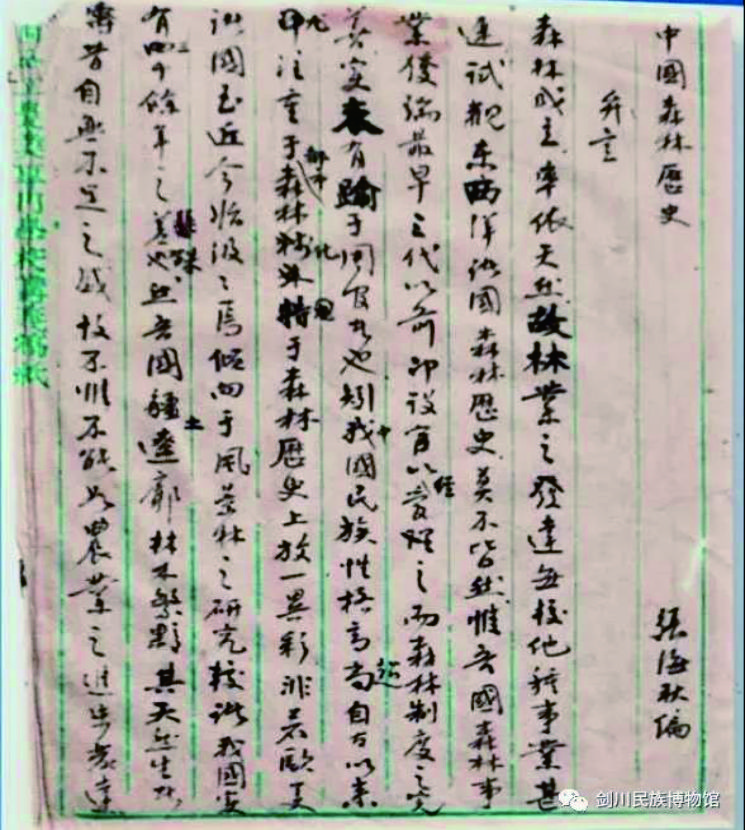 中國森林歷史
張海秋編
弁言
森林成立率依天然故林業之發達每較他種事業甚
遲試觀东西洋諸國森林歷史莫不皆然惟吾國森林事
業發端最早三代以前即设官以經理之而森林制度之完
美更有踰于周官者也矧我中國民族性格高尚自古以來
即注重于都市森林特于森林歷史上放一異彩非若歐美
諸國至近今始汲之焉傾向于風景林之研究較諸我國实
有四千餘年之差也然吾國疆土遼廓林木繁夥其天然生
昔自無不足之感故不惟不能如農業之進步發達
剑川民族博物馆